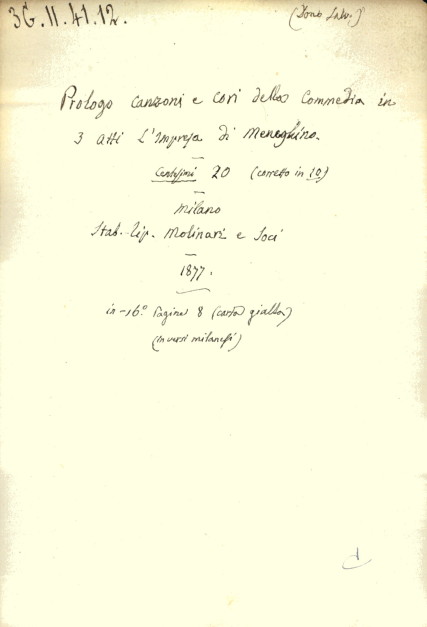 3G.II.41.12.
(Dono Salv.)
Prologo canzoni e cori della Commedia in
3 atti L'Impresa di Meneghino.
Centesimi 20 (corretto in 10)
Milano
Stab. Tip. Molinari e Soci
1877.
in-16.° Pagine 8 (carta gialla)
(in versi milanesi)